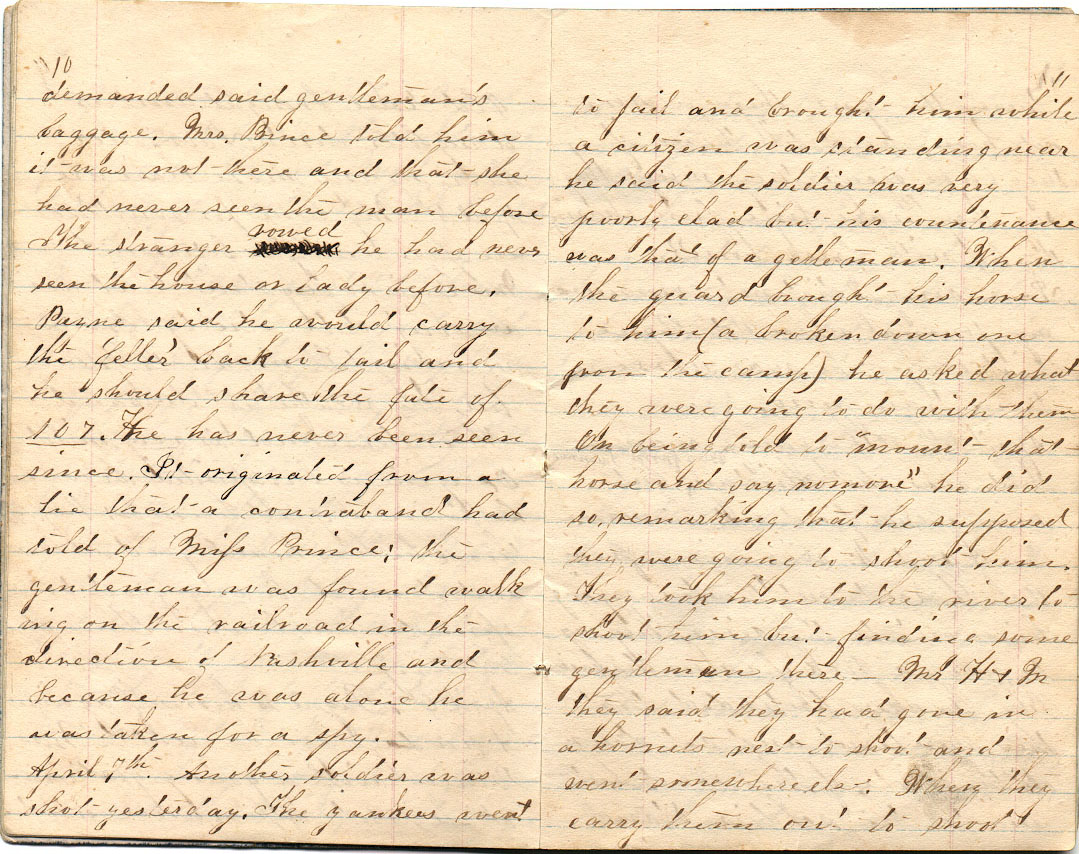 10
demanded said gentleman's
baggage. Mrs. Prince told him
it was not there and that she
had never seen the man before
The stranger vowed he had never
seen the house or lady before.
Payne said he would carry
the 'feller' back to jail and
he should share the fate of
107. He has never been seen
since. It originated from a
lie that a contraband had
told of Miss Prince; the
gentleman was found walk
ing on the railroad in the
direction of Nashville and
because he was alone he
was taken for a spy.
April 7th. Another soldier was
shot yesterday. The yankees went
11
to jail and brought him while
a citizen was standing near
he said the soldier was very
poorly clad but his countenance
was that of a gentleman. When
the guard brought his horse
to him (a broken down one
from the camp) he asked what
they were going to do with them
On being told to "mount that
horse and say nomore" he did
so, remarking that he supposed
they were going to shoot him.
They took him to the river to
shoot him but finding some
gentleman there — Mr H + M
they said they had gone in
a hornets nest to shoot and
went somewhere els. When they
carry them out to shoot